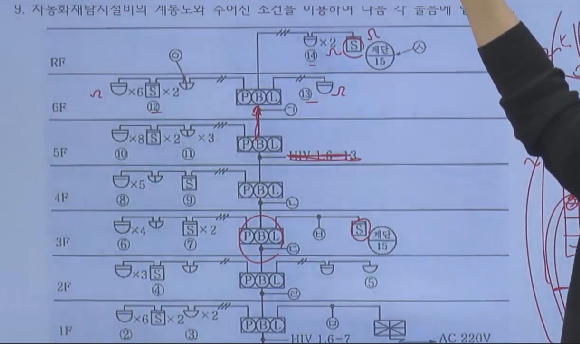 9. 자동화재탐지설비의 계통도와 주어진 조건을 이용하여 다음 각 물음에 답
RF ×2 ⑭ Ω S Ω 계단 15
6F Ω ×6 S ×2 ⑫ P B L ⑬ Ω ㉠
5F ×8 S ×2 ×3 ⑩ ⑪ P B L HIV 1.6-13
4F ×5 S ⑧ ⑨ P B L ㉡
3F ×4 S ×2 ⑥ ⑦ P B L ㉢ ㉥ S 계단 15
2F ×3 S ④ P B L ㉣ ⑤
1F ×6 S ×2 ×2 ② ③ P B L ㉥ HIV 1.6-7 AC 220V